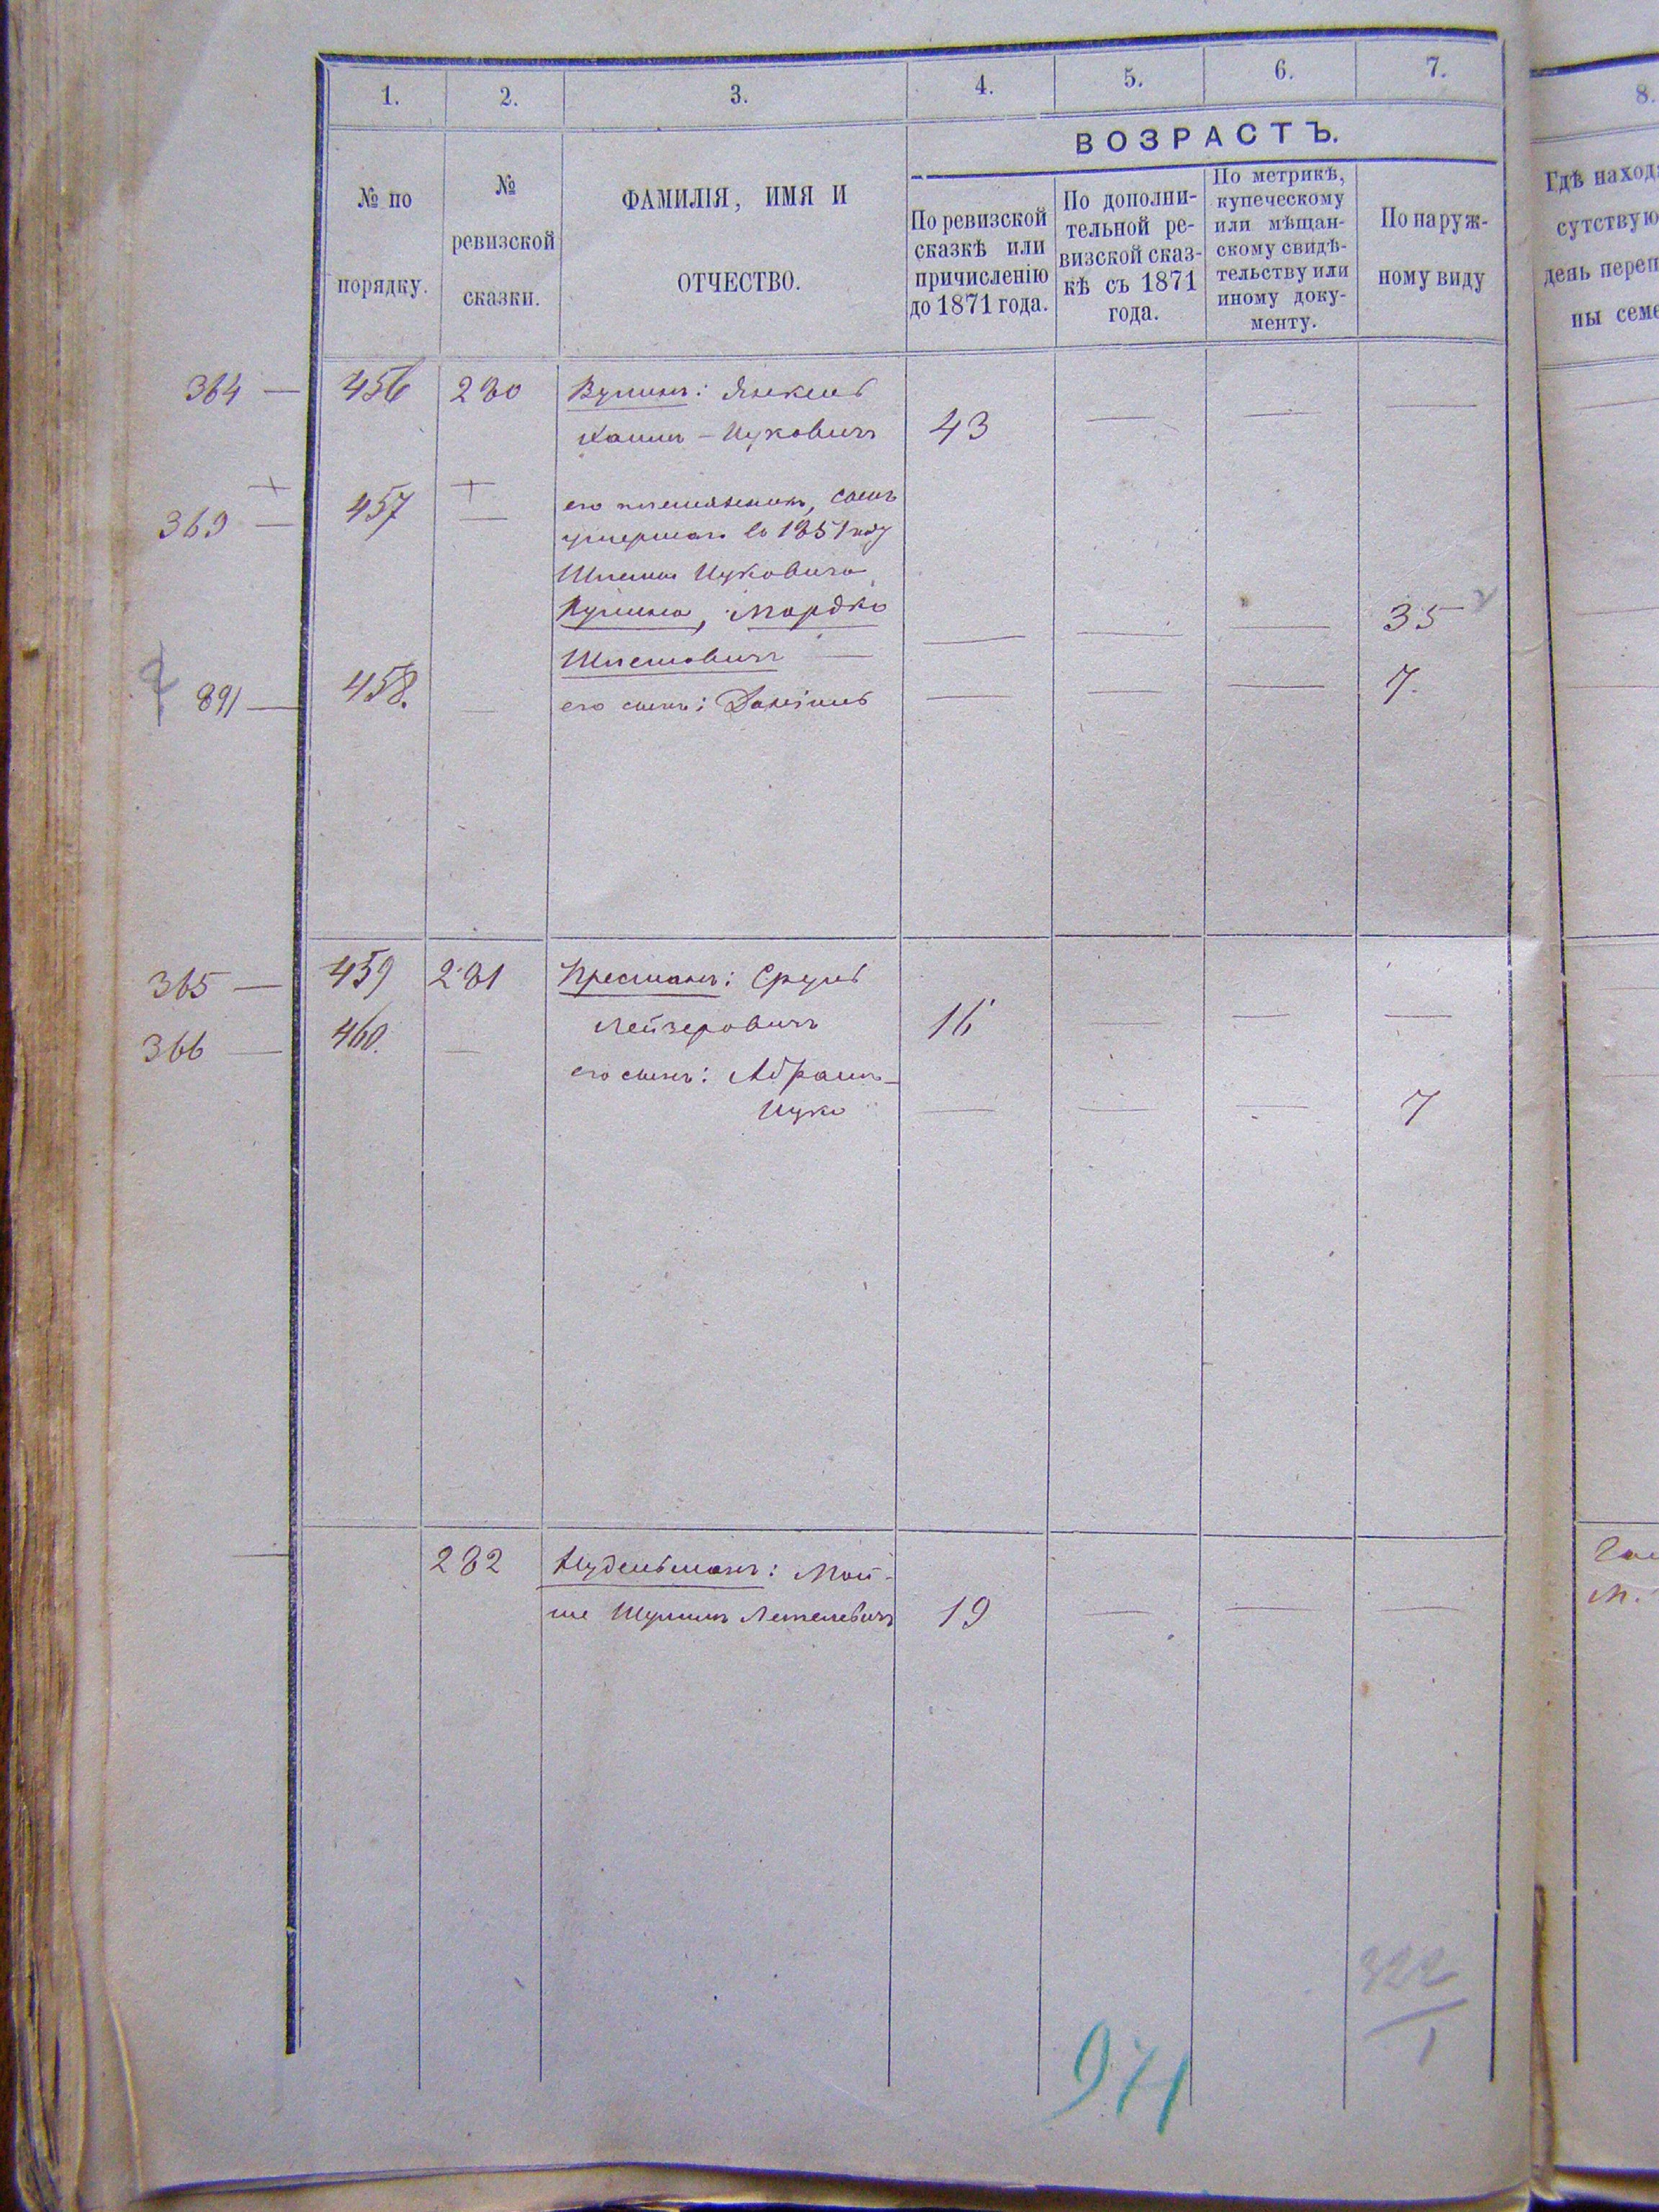 1.
2.
3.
4.
5.
6.
7.
8.
ВОЗРАСТЪ.
№ по
порядку.
№
ревизской
сказки.
ФАМИЛІЯ, ИМЯ И
ОТЧЕСТВО.
По ревизской
сказкѣ или
причисленію
до 1871 года.
По дополни-
тельной ре-
визской сказ-
кѣ съ 1871
года.
По метрикѣ,
купеческому
или мѣщан-
скому свидѣ-
тельству или
иному доку-
менту.
По наруж-
ному виду
Гдѣ наход
сутствую
день переп
ны семе
364 — 456 280 Янкель
Ицковичъ 43 — — —
369 — 457 — его племянникъ, сынъ
умершаго въ 1851 году
Шлемы Ицковича
Мордко — — — 35
Шлемовичъ —
891 — 458. — его сынъ: Даніиль — — — 7.
365 — 459 281 Пресманъ: Сруль
Лейзеровичъ 16 — — —
366 — 460. — его сынъ: Абрамъ-
Ицко — — — 7
282 Нудельманъ: Мой-
ше Шулимъ 19 — — —
М.
971
322
1